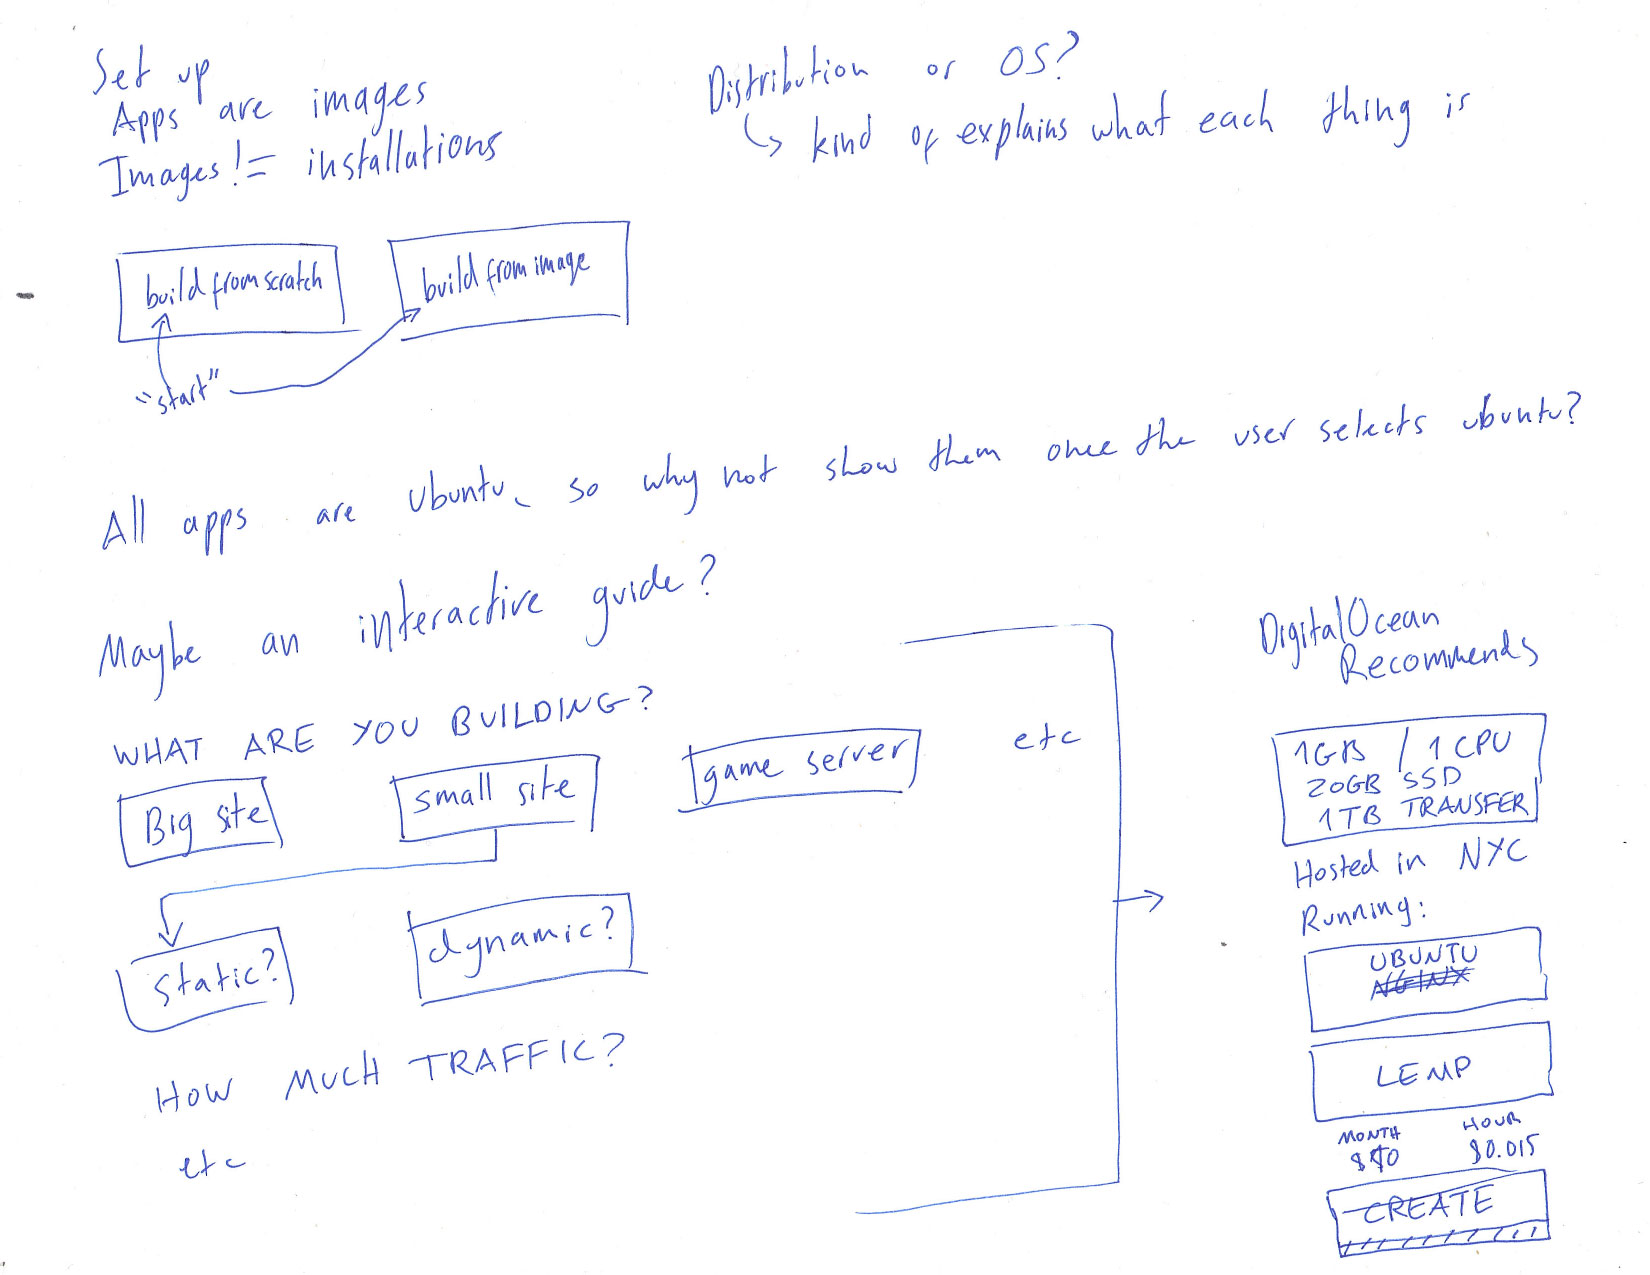 Set up
Apps are images
Images != installations
Distribution or OS?
kind of explains what each thing is
build from scratch
build from image
"start"
All apps are Ubuntu, so why not show them once the user selects ubuntu?
Maybe an interactive guide?
WHAT ARE YOU BUILDING?
Big site
small site
game server
etc
static?
dynamic?
HOW MUCH TRAFFIC?
etc
DigitalOcean
Recommends
1GB / 1 CPU
20GB SSD
1TB TRANSFER
Hosted in NYC
Running:
UBUNTU
NGINX
LEMP
MONTH HOUR
$10 $0.015
CREATE